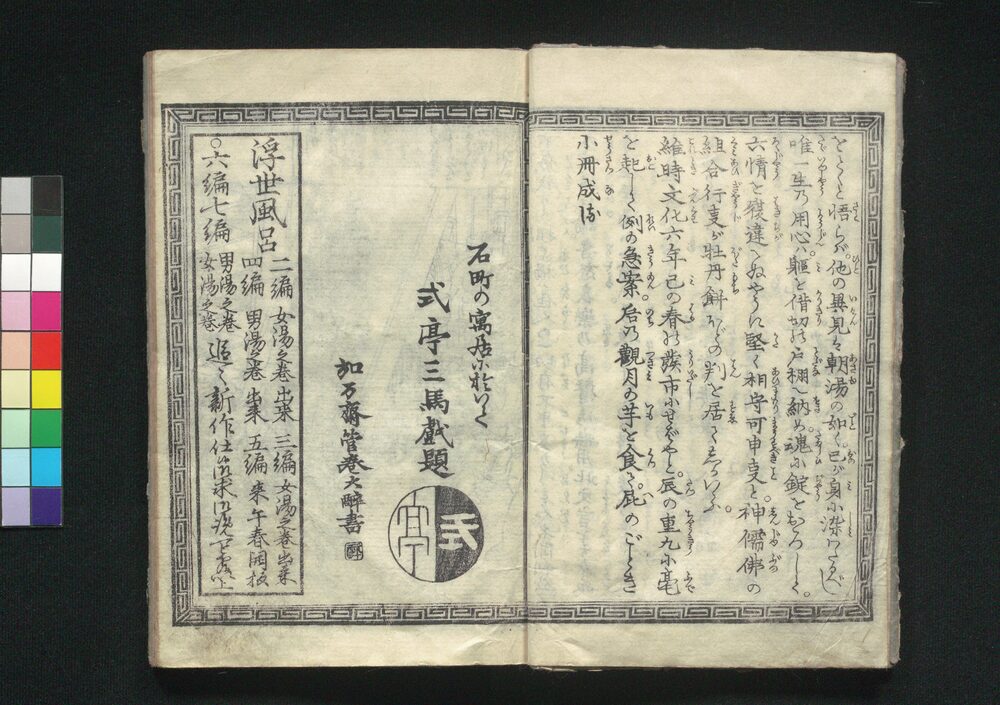 をと〳〵と悟らば。他の異見も朝湯の如く。己が身に染わたるべし
唯一生乃用心ハ。軀を借切の戸棚へ納め。魂に錠をおろして。
六情を履違へぬやうに堅く相守可申事と。神儒佛の
組合行事が牡丹餅ほどの判を居てしるいふ。
維時文化六年己の春の發市にせばやと。辰の重九に毫
を起して例の急案。后の觀月の芋を食て。屁のごとき
小冊成ぬ
石町の寓居において
式亭三馬戲題
式亭
加万齋管卷大醉書
浮世風呂
二編 女湯之巻出来 三編 女湯之巻出来
四編 男湯之巻出来 五編 来午春開板
○六編七編 男湯之巻 女湯之巻 追々新作仕候